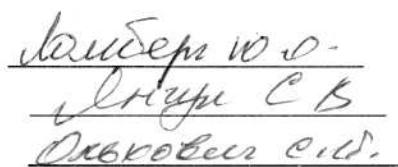 Ламберг Ю.О.
Янчук С В
Ольхович С.М.